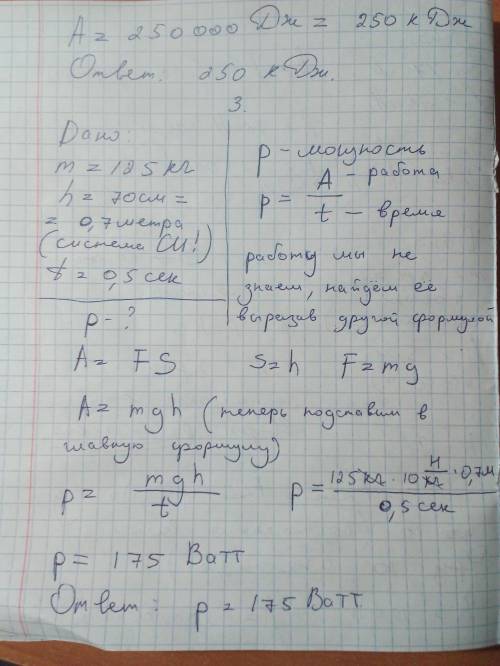 A = 250000 Дж = 250 кДж
Ответ. 250 кДж.
3.
Дано:
m = 125 кг
h = 70см =
= 0,7метра
(система СИ!)
t = 0,5 сек
p - ?
p - мощность
p = A/t A - работа t - время
работу мы не
знаем, найдём её
выразав другой формулой
A = FS S = h F = mg
A = mgh (теперь подставим в
главную формулу)
p = mgh/t p = 125кг · 10 Н/кг · 0,7м/0,5 сек
p = 175 Ватт
Ответ: p = 175 Ватт